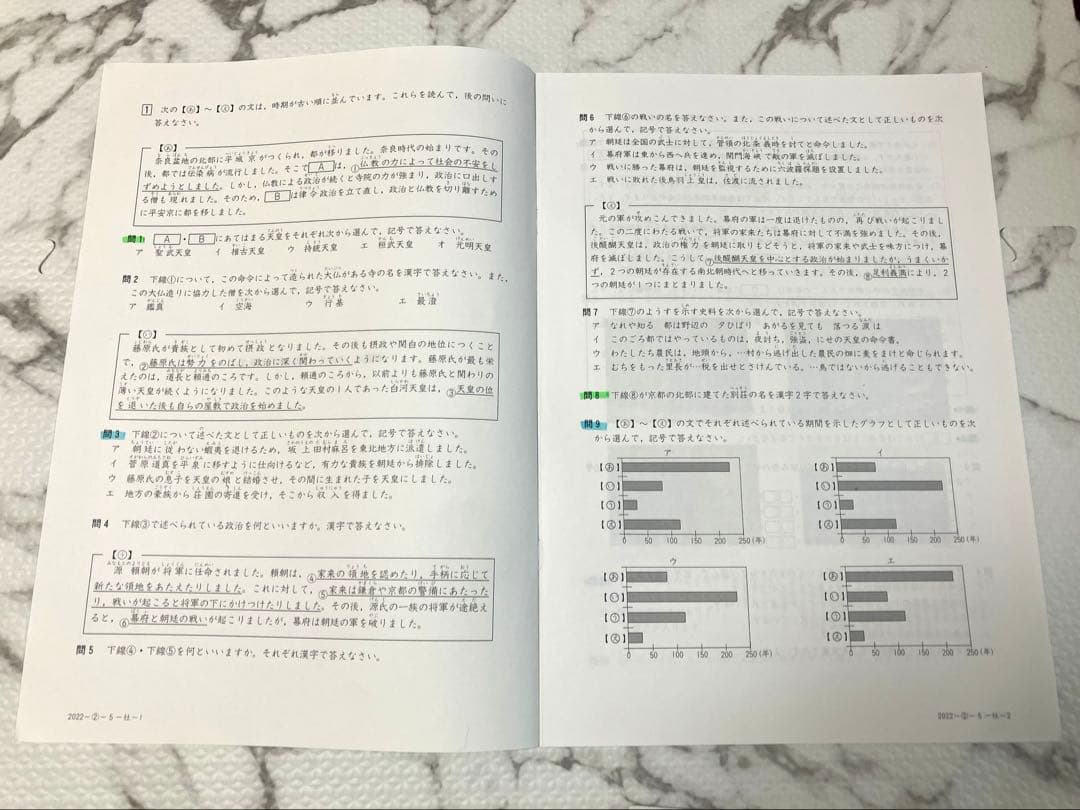 1 次の【あ】～【え】の文は，時期が古い順に並んでいます。これらを読んで，後の問いに
答えなさい。
【あ】
奈良盆地の北部に平城京がつくられ，都が移りました。奈良時代の始まりです。その
後，都では伝染病が流行しました。そこで A は，①仏教の力によって社会の不安をし
ずめようとしました。しかし，仏教による政治が続くと寺院の力が強まり，政治に口出しす
る僧も現れました。そのため， B は律令政治を立て直し，政治と仏教を切り離すため
に平安京に都を移しました。
問1 A ・ B にあてはまる天皇をそれぞれ次から選んで，記号で答えなさい。
ア 聖武天皇 イ 推古天皇 ウ 持統天皇 エ 桓武天皇 オ 元明天皇
問2 下線①について，この命令によって造られた大仏がある寺の名を漢字で答えなさい。また，
この大仏造りに協力した僧を次から選んで，記号で答えなさい。
ア 鑑真 イ 空海 ウ 行基 エ 最澄
【い】
藤原氏が貴族として初めて摂政となりました。その後も摂政や関白の地位につくこと
で，②藤原氏は勢力をのばし，政治に深く関わっていくようになります。藤原氏が最も栄
えたのは，道長と頼通のころです。しかし，頼通のころから，以前よりも藤原氏と関わりの
薄い天皇が続くようになりました。このような天皇の1人であった白河天皇は，③天皇の位
を退いた後も自らの屋敷で政治を始めました。
問3 下線②について述べた文として正しいものを次から選んで，記号で答えなさい。
ア 朝廷に従わない蝦夷を退けるため，坂上田村麻呂を東北地方に派遣しました。
イ 菅原道真を平泉に移すように仕向けるなど，有力な貴族を朝廷から排除しました。
ウ 藤原氏の息子を天皇の娘と結婚させ，その間に生まれた子を天皇にしました。
エ 地方の豪族から荘園の寄進を受け，そこから収入を得ました。
問4 下線③で述べられている政治を何といいますか。漢字で答えなさい。
【う】
源頼朝が将軍に任命されました。頼朝は，④家来の領地を認めたり，手柄に応じて
新たな領地をあたえたりしました。これに対して，⑤家来は鎌倉や京都の警備にあたった
り，戦いが起こると将軍の下にかけつけたりしました。その後，源氏の一族の将軍が途絶え
ると，⑥幕府と朝廷の戦いが起こりましたが，幕府は朝廷の軍を破りました。
問5 下線④・下線⑤を何といいますか。それぞれ漢字で答えなさい。
2022－②－5－社－1
問6 下線⑥の戦いの名を答えなさい。また，この戦いについて述べた文として正しいものを次
から選んで，記号で答えなさい。
ア 朝廷は全国の武士に対して，管領の北条義時を討てと命令しました。
イ 幕府軍は東から西へ兵を進め，関門海峡で敵の軍を滅ぼしました。
ウ 戦いに勝った幕府は，朝廷を監視するために六波羅探題を設置しました。
エ 戦いに敗れた後鳥羽上皇は，佐渡に流されました。
【え】
元の軍が攻めこんできました。幕府の軍は一度は退けたものの，再び戦いが起こりまし
た。この二度にわたる戦いで，将軍の家来たちは幕府に対して不満を強めました。その後，
後醍醐天皇は，政治の権力を朝廷に取りもどそうと，将軍の家来や武士を味方につけ，幕
府を滅ぼしました。こうして⑦後醍醐天皇を中心とする政治が始まりましたが，うまくいか
ず，2つの朝廷が存在する南北朝時代へと移っていきます。その後，⑧足利義満により，2
つの朝廷が1つにまとまりました。
問7 下線⑦のようすを示す史料を次から選んで，記号で答えなさい。
ア なれや知る 都は野辺の 夕ひばり あがるを見ても 落つる涙は
イ このごろ都ではやっているものは，夜討ち，強盗，にせの天皇の命令書。
ウ わたしたち農民は，地頭から，…村から逃げ出した農民の畑に麦をまけと命じられます。
エ むちをもった里長が…税を出せとさけんでいる。…鳥ではないから逃げることもできない。
問8 下線⑧が京都の北部に建てた別荘の名を漢字2字で答えなさい。
問9 【あ】～【え】の文でそれぞれ述べられている期間を示したグラフとして正しいものを次
から選んで，記号で答えなさい。
ア イ
【あ】 【あ】
【い】 【い】
【う】 【う】
【え】 【え】
0 50 100 150 200 250(年) 0 50 100 150 200 250(年)
ウ エ
【あ】 【あ】
【い】 【い】
【う】 【う】
【え】 【え】
0 50 100 150 200 250(年) 0 50 100 150 200 250(年)
2022－②－5－社－2